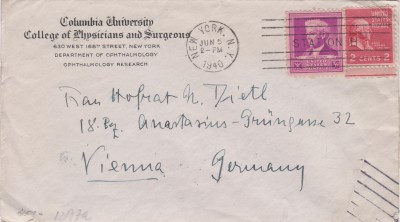 Columbia University
College of Physicians and Surgeons
630 WEST 168TH STREET, NEW YORK
DEPARTMENT OF OPHTHALMOLOGY
OPHTHALMOLOGY RESEARCH
NEW YORK, N.Y.
JUN 5
2-PM
1940
STATION
2 CENTS 2
Frau Hofrat M. Dietl
18. Bez. Anastasius-Grüngasse 32
Vienna Germany